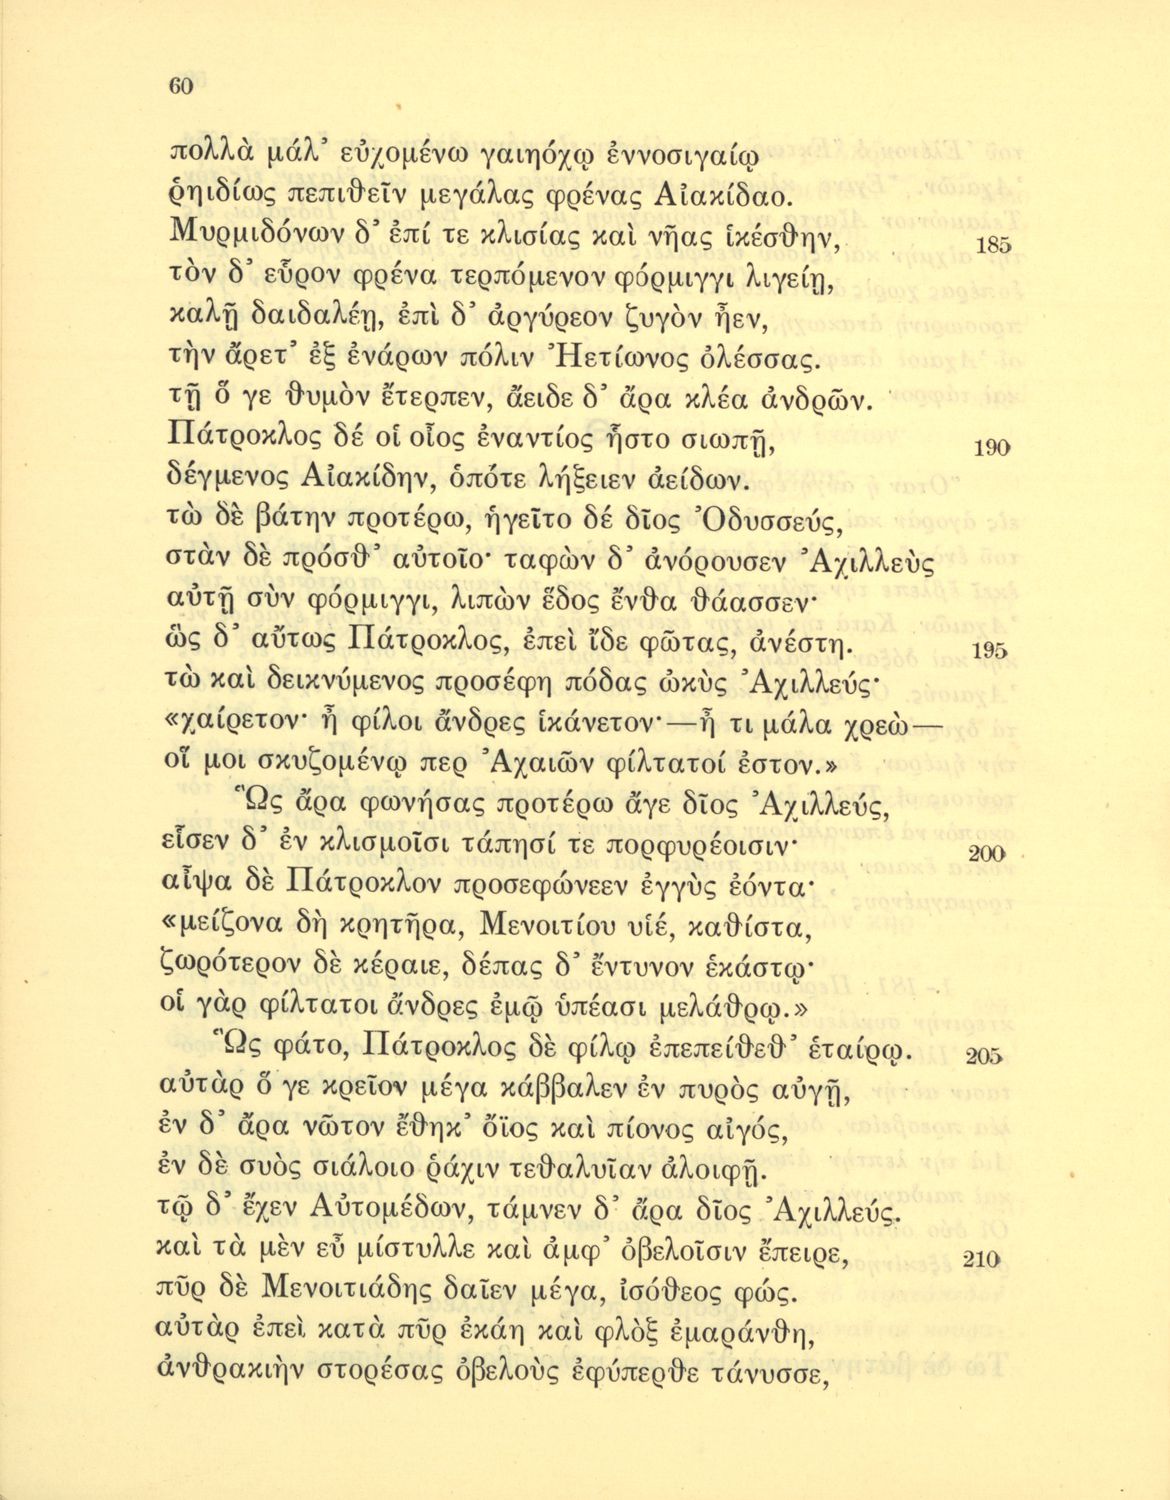 60
πολλὰ μάλ’ εὐχομένω γαιηόχῳ ἐννοσιγαίῳ
ῥηιδίως πεπιθεῖν μεγάλας φρένας Αἰακίδαο.
Μυρμιδόνων δ’ ἐπί τε κλισίας καὶ νῆας ἱκέσθην, 185
τὸν δ’ εὗρον φρένα τερπόμενον φόρμιγγι λιγείῃ,
καλῇ δαιδαλέῃ, ἐπὶ δ’ ἀργύρεον ζυγὸν ἦεν,
τὴν ἄρετ’ ἐξ ἐνάρων πόλιν Ἠετίωνος ὀλέσσας.
τῇ ὅ γε θυμὸν ἔτερπεν, ἄειδε δ’ ἄρα κλέα ἀνδρῶν.
Πάτροκλος δέ οἱ οἶος ἐναντίος ἧστο σιωπῇ, 190
δέγμενος Αἰακίδην, ὁπότε λήξειεν ἀείδων.
τὼ δὲ βάτην προτέρω, ἡγεῖτο δέ δῖος Ὀδυσσεύς,
στὰν δὲ πρόσθ’ αὐτοῖο· ταφὼν δ’ ἀνόρουσεν Ἀχιλλεὺς
αὐτῇ σὺν φόρμιγγι, λιπὼν ἕδος ἔνθα θάασσεν·
ὣς δ’ αὔτως Πάτροκλος, ἐπεὶ ἴδε φῶτας, ἀνέστη. 195
τὼ καὶ δεικνύμενος προσέφη πόδας ὠκὺς Ἀχιλλεύς·
«χαίρετον· ἦ φίλοι ἄνδρες ἱκάνετον·—ἦ τι μάλα χρεὼ—
οἵ μοι σκυζομένῳ περ Ἀχαιῶν φίλτατοί ἐστον.»
Ὣς ἄρα φωνήσας προτέρω ἄγε δῖος Ἀχιλλεύς,
εἷσεν δ’ ἐν κλισμοῖσι τάπησί τε πορφυρέοισιν· 200
αἶψα δὲ Πάτροκλον προσεφώνεεν ἐγγὺς ἐόντα·
«μείζονα δὴ κρητῆρα, Μενοιτίου υἱέ, καθίστα,
ζωρότερον δὲ κέραιε, δέπας δ’ ἔντυνον ἑκάστῳ·
οἱ γὰρ φίλτατοι ἄνδρες ἐμῷ ὑπέασι μελάθρῳ.»
Ὣς φάτο, Πάτροκλος δὲ φίλῳ ἐπεπείθεθ’ ἑταίρῳ. 205
αὐτὰρ ὅ γε κρεῖον μέγα κάββαλεν ἐν πυρὸς αὐγῇ,
ἐν δ’ ἄρα νῶτον ἔθηκ’ ὄϊος καὶ πίονος αἰγός,
ἐν δὲ συὸς σιάλοιο ῥάχιν τεθαλυῖαν ἀλοιφῇ.
τῷ δ’ ἔχεν Αὐτομέδων, τάμνεν δ’ ἄρα δῖος Ἀχιλλεύς.
καὶ τὰ μὲν εὖ μίστυλλε καὶ ἀμφ’ ὀβελοῖσιν ἔπειρε, 210
πῦρ δὲ Μενοιτιάδης δαῖεν μέγα, ἰσόθεος φώς.
αὐτὰρ ἐπεὶ κατὰ πῦρ ἐκάη καὶ φλὸξ ἐμαράνθη,
ἀνθρακιὴν στορέσας ὀβελοὺς ἐφύπερθε τάνυσσε,